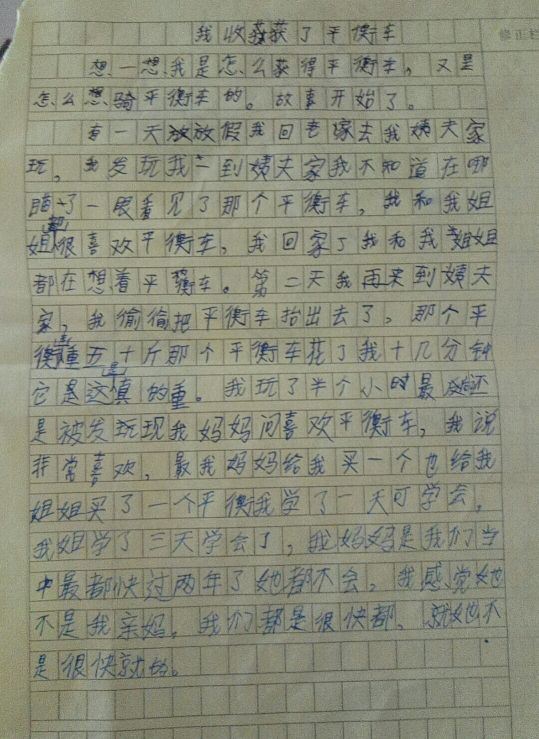 我收获了平衡车
想一想我是怎么获得平衡车，又是
怎么想骑平衡车的。故事开始了。
有一天放放假我回老家去我姨夫家
玩，我发玩我一到姨夫家我不知道在哪
瞄了一眼看见了那个平衡车，我和我姐
姐都很喜欢平衡车，我回家了我和我姐姐
都在想着平衡车。第二天我再来到姨夫
家，我偷偷把平衡车抬出去了，那个平
衡車重五十斤那个平衡车花了我十几分钟
它是这真的重。我玩了半个小时最后还
是被发玩现我妈妈问喜欢平衡车，我说
非常喜欢，最我妈妈给我买一个也给我
姐姐买了一个平衡我学了一天可学会，
我姐学了三天学会了，我妈妈是我们当
中最都快过两年了她都不会，我感觉她
不是我亲妈，我们都是很快都、就她不
是很快就的。
修正栏